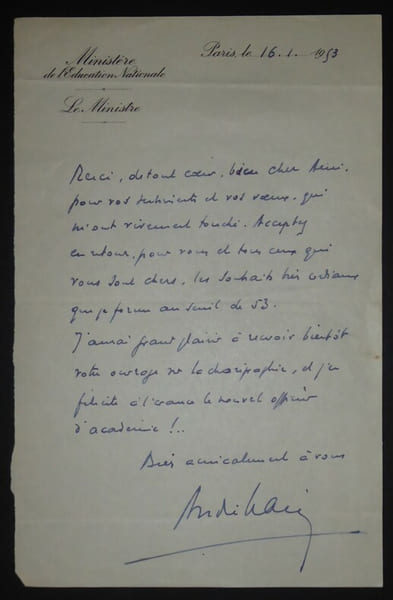 Ministère
de l'Education Nationale
Le Ministre
Paris, le 16.1.1953
Merci, de tout cœur, bien cher Ami,
pour vos sentiments et vos vœux, qui
m'ont vivement touché. Acceptez
en retour, pour vous et tous ceux qui
vous sont chers, les souhaits très cordiaux
que je forme au seuil de 53.
J'aurai grand plaisir à recevoir bientôt
votre ouvrage sur la, et j'en
félicite à l'avance le nouvel officier
d'académie !..
Bien amicalement à vous
André Marie